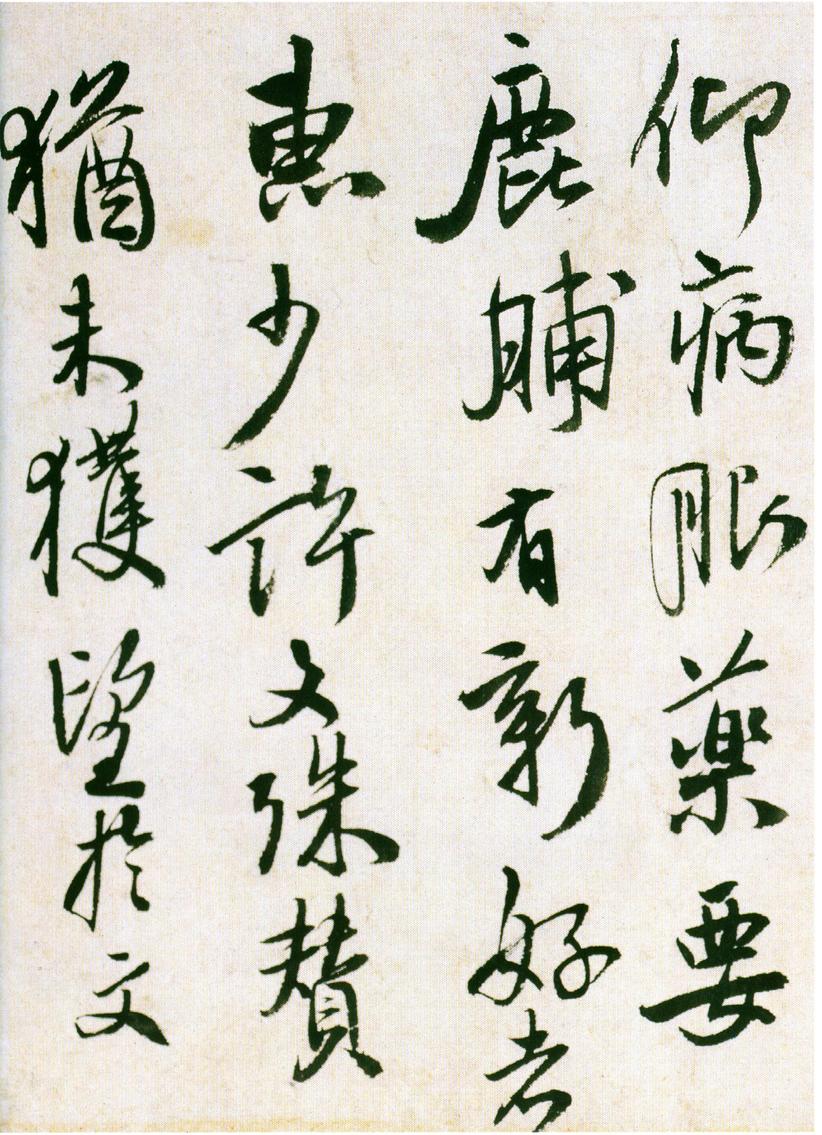 仰病眼藥要
鹿脯有新好者
惠少許文殊贊
猶未獲望於文